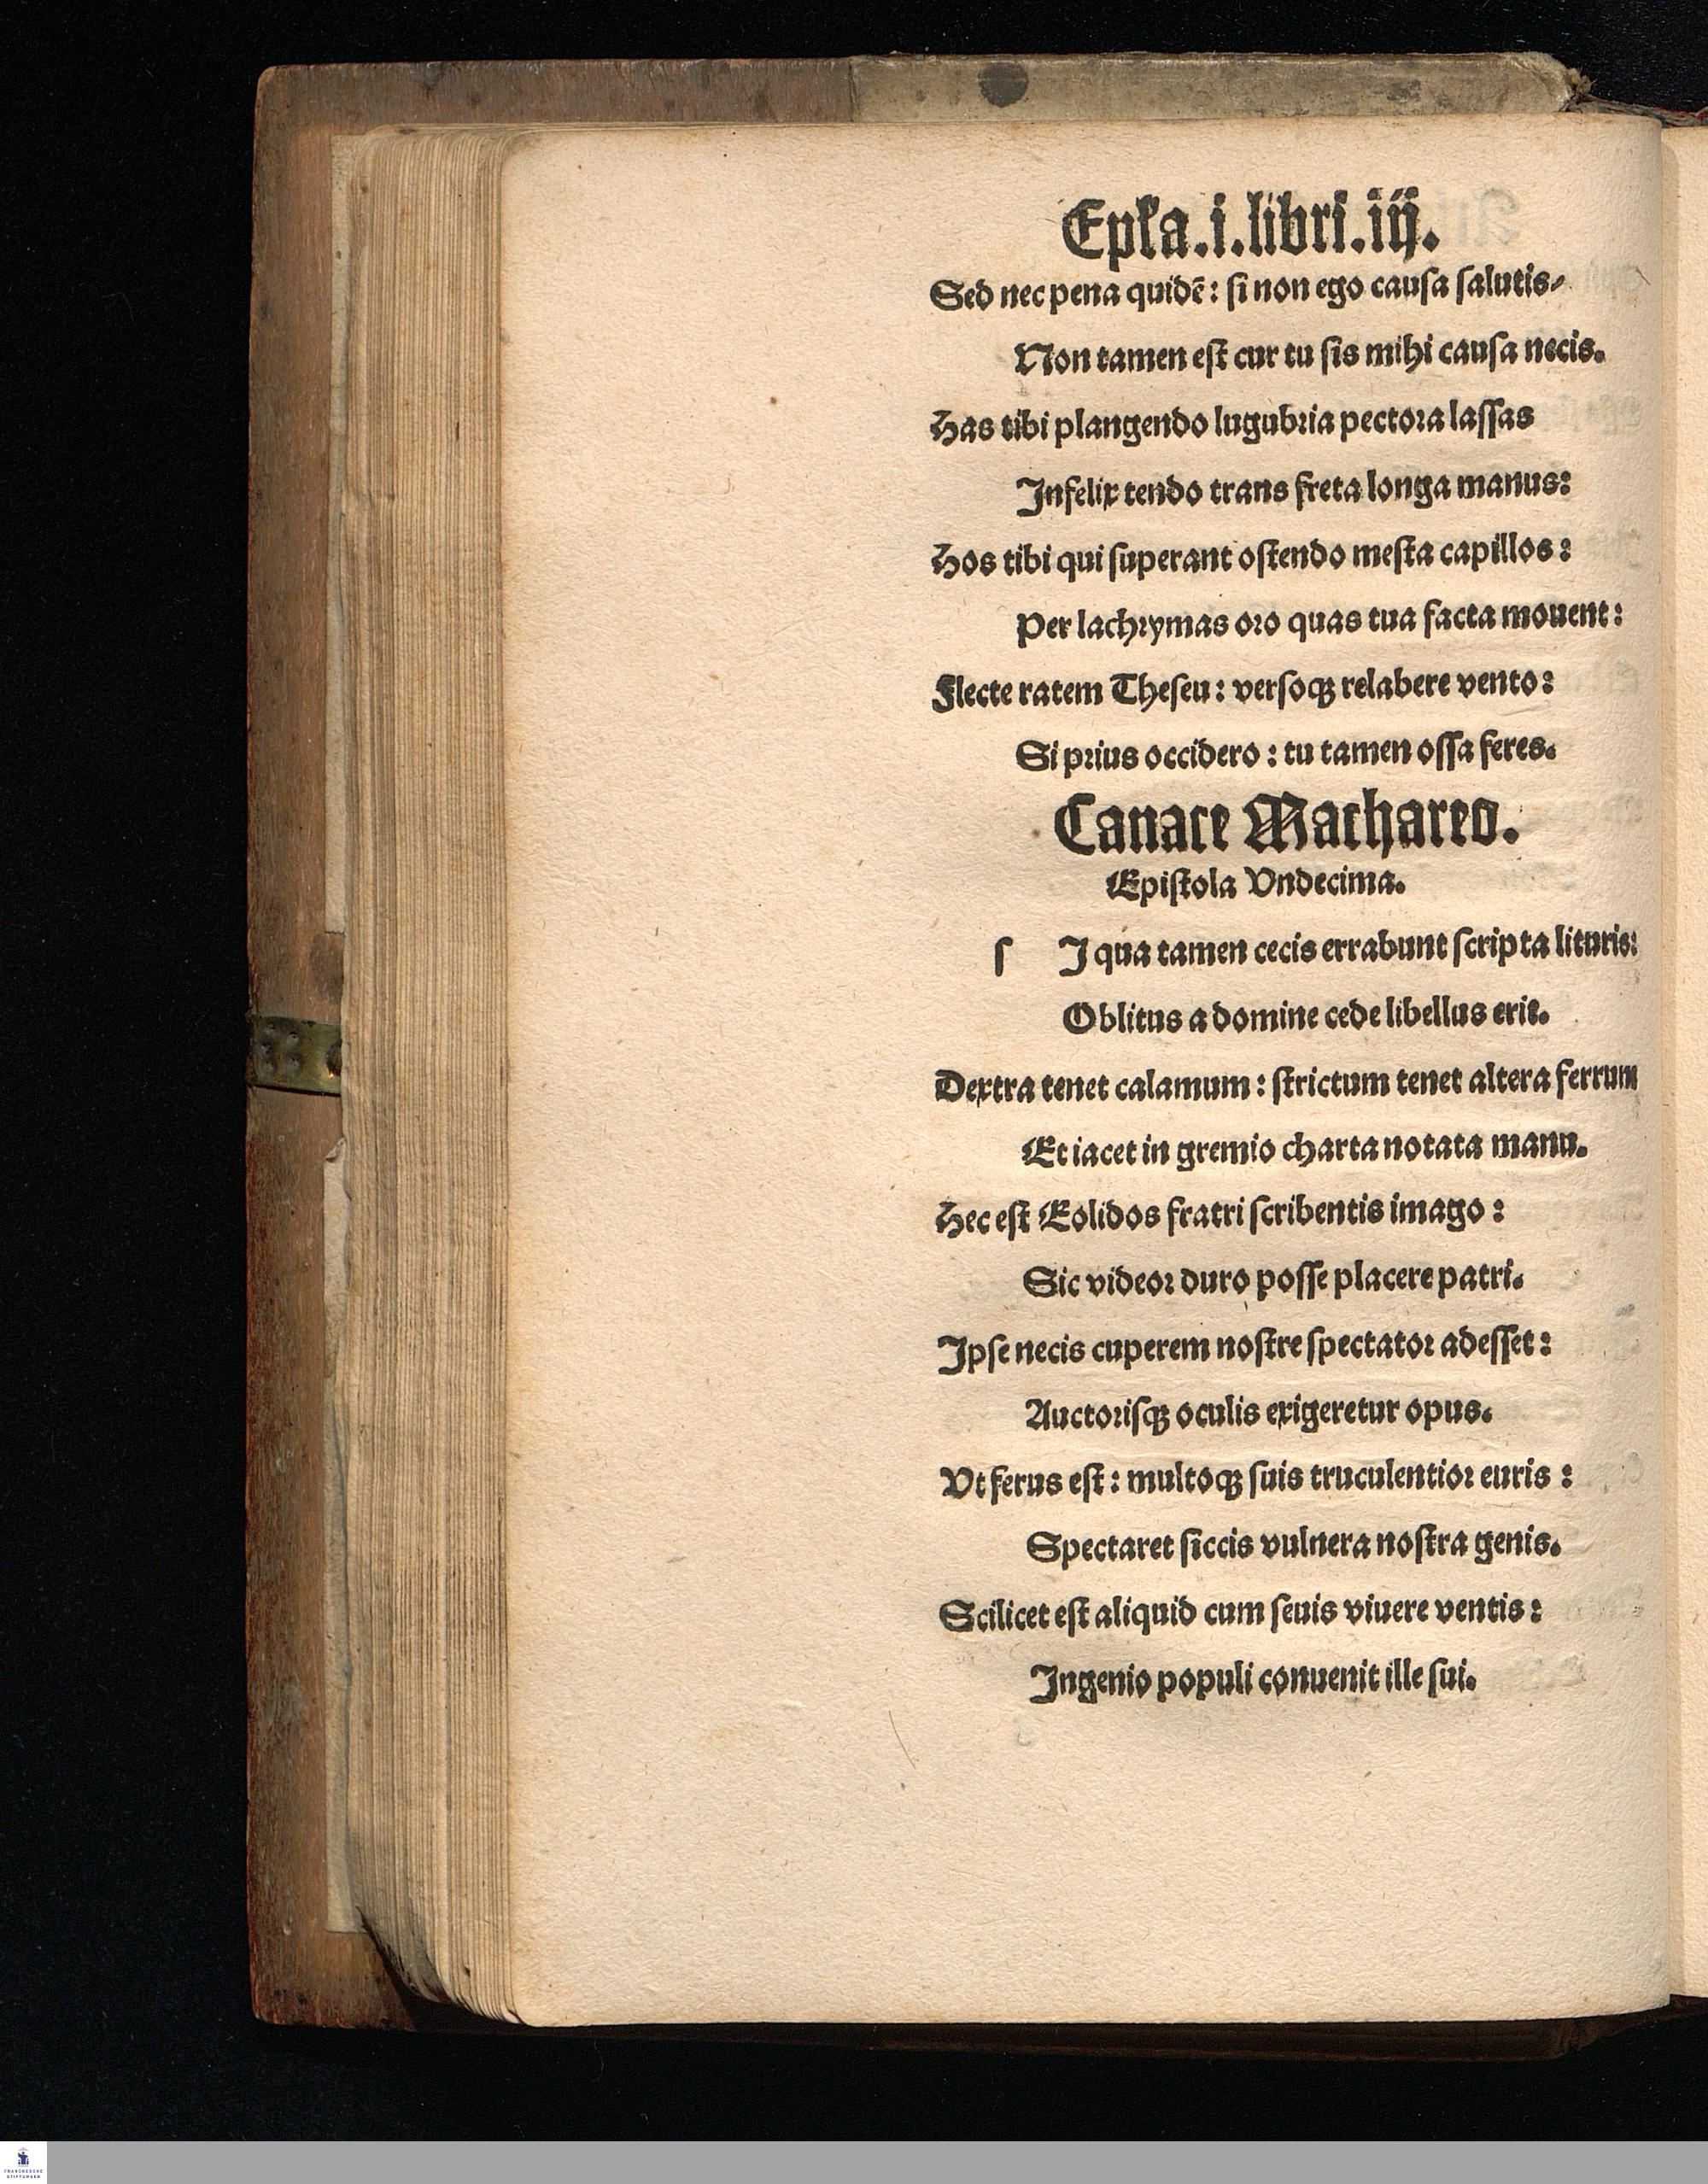 Epľa.i.libri.iij.
Sed nec pena quidē: si non ego causa salutis⸗
Non tamen est cur tu sis mihi causa necis.
Has tibi plangendo lugubria pectora lassas
Infelix tendo trans freta longa manus:
Hos tibi qui superant ostendo mesta capillos:
Per lachrymas oro quas tua facta mouent:
Flecte ratem Theseu: versoqꝫ relabere vento:
Si prius occidero: tu tamen ossa feres.
Canace Machareo.
Epistola Undecima.
ſ I qua tamen cecis errabunt scripta lituris:
Oblitus a domine cede libellus erit.
Dextra tenet calamum: strictum tenet altera ferrum
Et iacet in gremio charta notata manu.
Hec est Eolidos fratri scribentis imago:
Sic videor duro posse placere patri.
Ipse necis cuperem nostre spectator adesset:
Auctorisqꝫ oculis exigeretur opus.
Vt ferus est: multoqꝫ suis truculentior euris:
Spectaret siccis vulnera nostra genis.
Scilicet est aliquid cum seuis viuere ventis:
Ingenio populi conuenit ille sui.
FRANCKESCHE
STIFTUNGEN